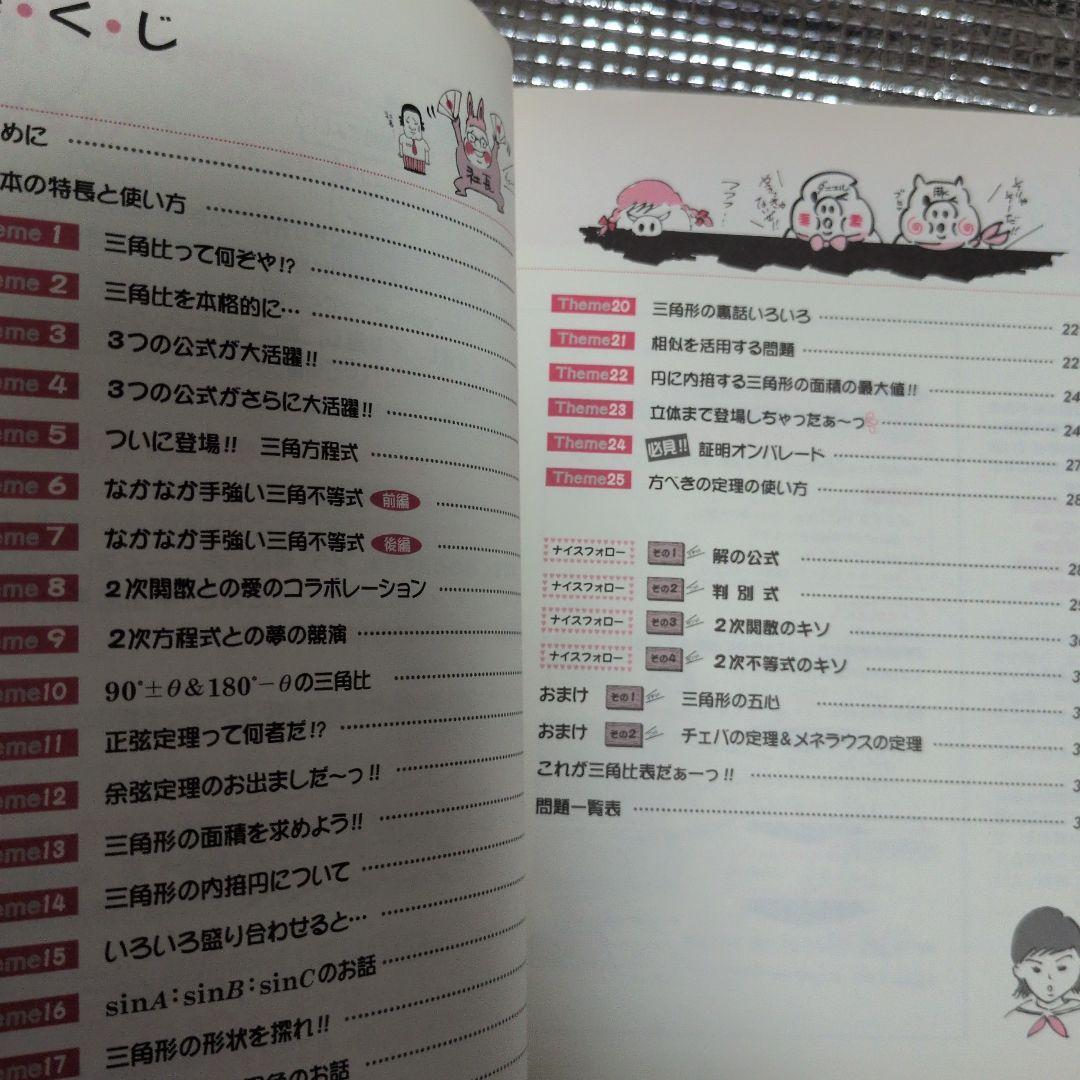 ・く・じ
めに
本の特長と使い方
eme 1 三角比って何ぞや!?
eme 2 三角比を本格的に…
eme 3 3つの公式が大活躍!!
eme 4 3つの公式がさらに大活躍!!
eme 5 ついに登場!! 三角方程式
eme 6 なかなか手強い三角不等式 前編
eme 7 なかなか手強い三角不等式 後編
eme 8 2次関数との愛のコラボレーション
eme 9 2次方程式との夢の競演
eme10 90°±θ&180°−θの三角比
eme11 正弦定理って何者だ!?
eme12 余弦定理のお出ましだ〜っ!!
eme13 三角形の面積を求めよう!!
eme14 三角形の内接円について
eme15 いろいろ盛り合わせると…
eme16 sinA:sinB:sinCのお話
eme17 三角形の形状を探れ!!
のお話
社長
Theme20 三角形の裏話いろいろ 22
Theme21 相似を活用する問題 22
Theme22 円に内接する三角形の面積の最大値!! 24
Theme23 立体まで登場しちゃったぁ〜っ 24
Theme24 必見!! 証明オンパレード 27
Theme25 方べきの定理の使い方 28
ナイスフォロー その1 解の公式 28
ナイスフォロー その2 判別式 29
ナイスフォロー その3 2次関数のキソ 3
ナイスフォロー その4 2次不等式のキソ 3
おまけ その1 三角形の五心 3
おまけ その2 チェバの定理&メネラウスの定理 3
これが三角比表だぁーっ!! 3
問題一覧表 3